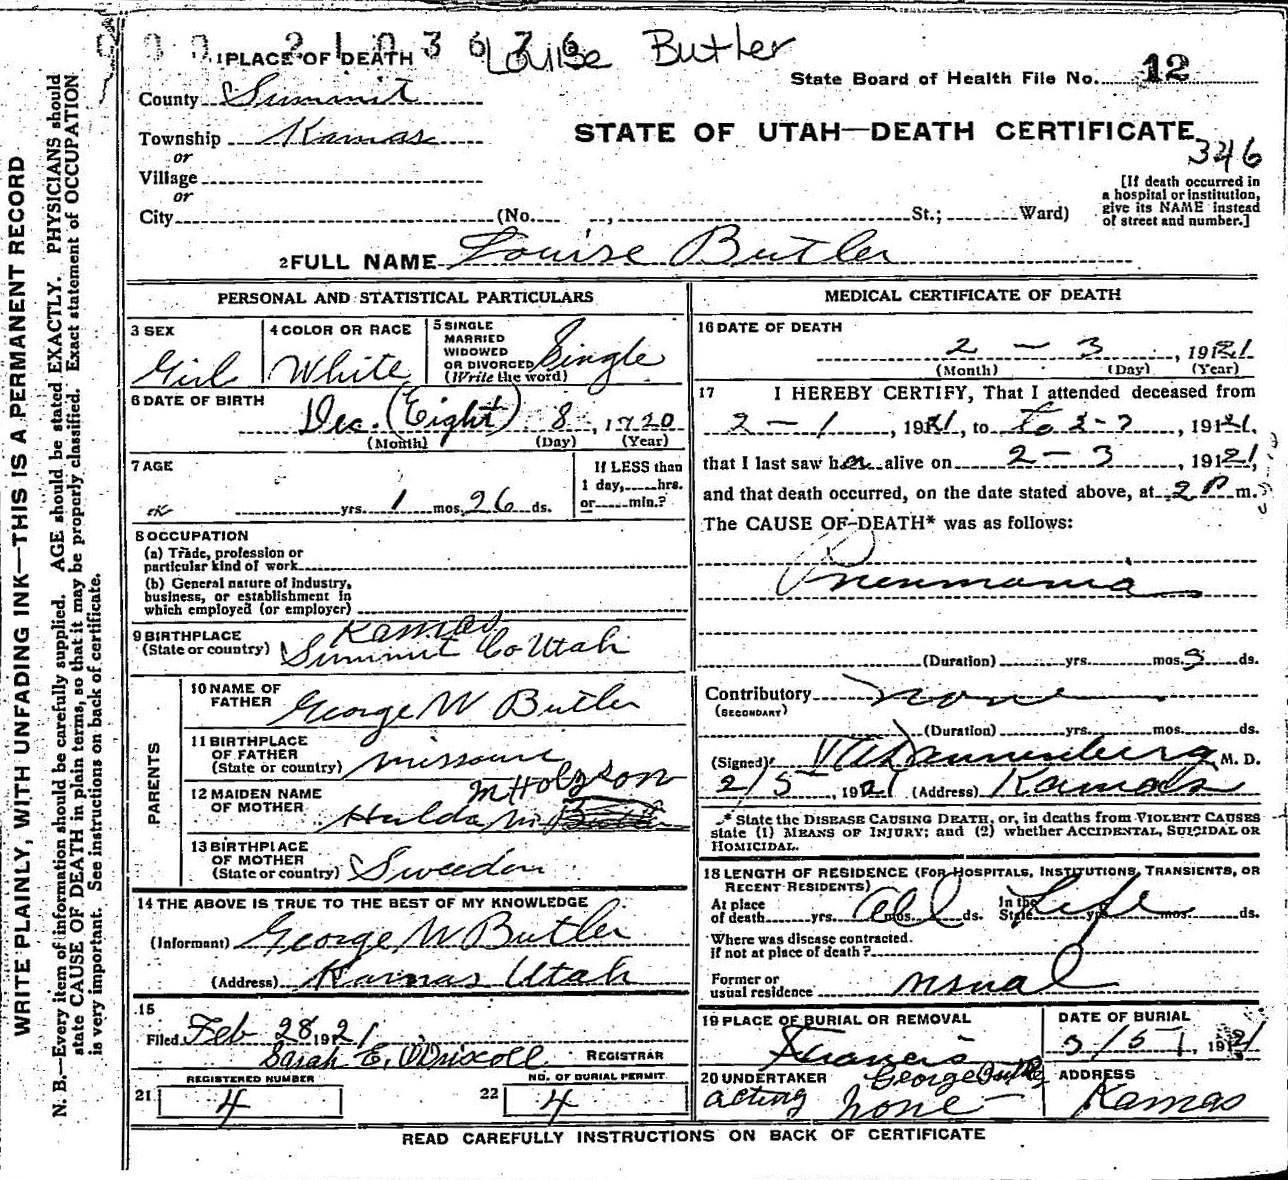 2103676
Louise Butler
1 PLACE OF DEATH
State Board of Health File No. 12
County Summit
STATE OF UTAH—DEATH CERTIFICATE
Township Kamas
346
or
Village
or
City (No. , St.; Ward)
[If death occurred in
a hospital or institution,
give its NAME instead
of street and number.]
2 FULL NAME Louise Butler
PERSONAL AND STATISTICAL PARTICULARS
3 SEX
Girl
4 COLOR OR RACE
White
5 SINGLE
MARRIED
WIDOWED
OR DIVORCED
(Write the word)
Single
6 DATE OF BIRTH
Dec. (Eight) 8, 1920
(Month) (Day) (Year)
7 AGE
ok yrs. 1 mos. 26 ds.
If LESS than
1 day, hrs.
or min.?
8 OCCUPATION
(a) Trade, profession or
particular kind of work
(b) General nature of industry,
business, or establishment in
which employed (or employer)
9 BIRTHPLACE
(State or country)
Kamas
Summit Co Utah
PARENTS
10 NAME OF
FATHER
George W Butler
11 BIRTHPLACE
OF FATHER
(State or country)
Missouri
12 MAIDEN NAME
OF MOTHER
Hulda M
13 BIRTHPLACE
OF MOTHER
(State or country)
Sweeden
14 THE ABOVE IS TRUE TO THE BEST OF MY KNOWLEDGE
(Informant) George W Butler
(Address) Kamas Utah
15
Filed Feb 28, 1921
Sarah E. O'Driscoll REGISTRAR
REGISTERED NUMBER
21 4
NO. OF BURIAL PERMIT
22 4
MEDICAL CERTIFICATE OF DEATH
16 DATE OF DEATH
2 — 3, 1921
(Month) (Day) (Year)
17 I HEREBY CERTIFY, That I attended deceased from
2 — 1, 1921, to to 2-3, 1921,
that I last saw her alive on 2 — 3, 1921,
and that death occurred, on the date stated above, at 2 P m.
The CAUSE OF DEATH* was as follows:
Pneumonia
(Duration) yrs. mos. 3 ds.
Contributory none
(SECONDARY)
(Duration) yrs. mos. ds.
(Signed) M. D.
2/5, 1921 (Address) Kamas
* State the DISEASE CAUSING DEATH, or, in deaths from VIOLENT CAUSES
state (1) MEANS OF INJURY; and (2) whether ACCIDENTAL, SUICIDAL OR
HOMICIDAL.
18 LENGTH OF RESIDENCE (FOR HOSPITALS, INSTITUTIONS, TRANSIENTS, OR
RECENT RESIDENTS)
At place
of death yrs. All mos. ds. In the
State Life yrs. mos. ds.
Where was disease contracted.
if not at place of death?
Former or
usual residence usual
19 PLACE OF BURIAL OR REMOVAL
Francis
DATE OF BURIAL
2/5, 1921
20 UNDERTAKER
George Butler
acting none
ADDRESS
Kamas
READ CAREFULLY INSTRUCTIONS ON BACK OF CERTIFICATE
WRITE PLAINLY, WITH UNFADING INK—THIS IS A PERMANENT RECORD
N. B.—Every item of information should be carefully supplied. AGE should be stated EXACTLY. PHYSICIANS should
state CAUSE OF DEATH in plain terms, so that it may be properly classified. Exact statement of OCCUPATION
is very important. See instructions on back of certificate.